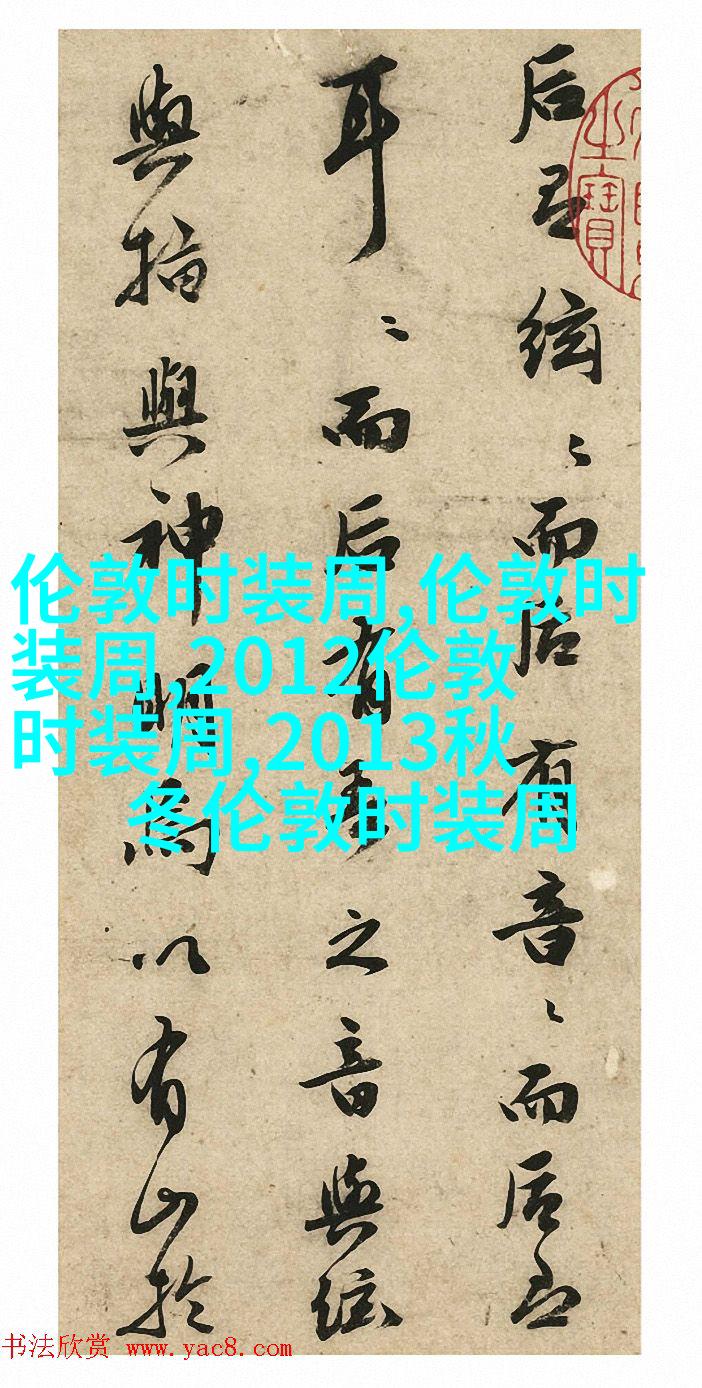 后絃〻而后有音〻而后
耳〻而后有琴之音與絃
與指與神明為以有山於
之寶
伦敦时装周,伦敦时
装周,2012伦敦
时装周,2013秋
冬伦敦时装周
书法欣赏 www.yac8.com